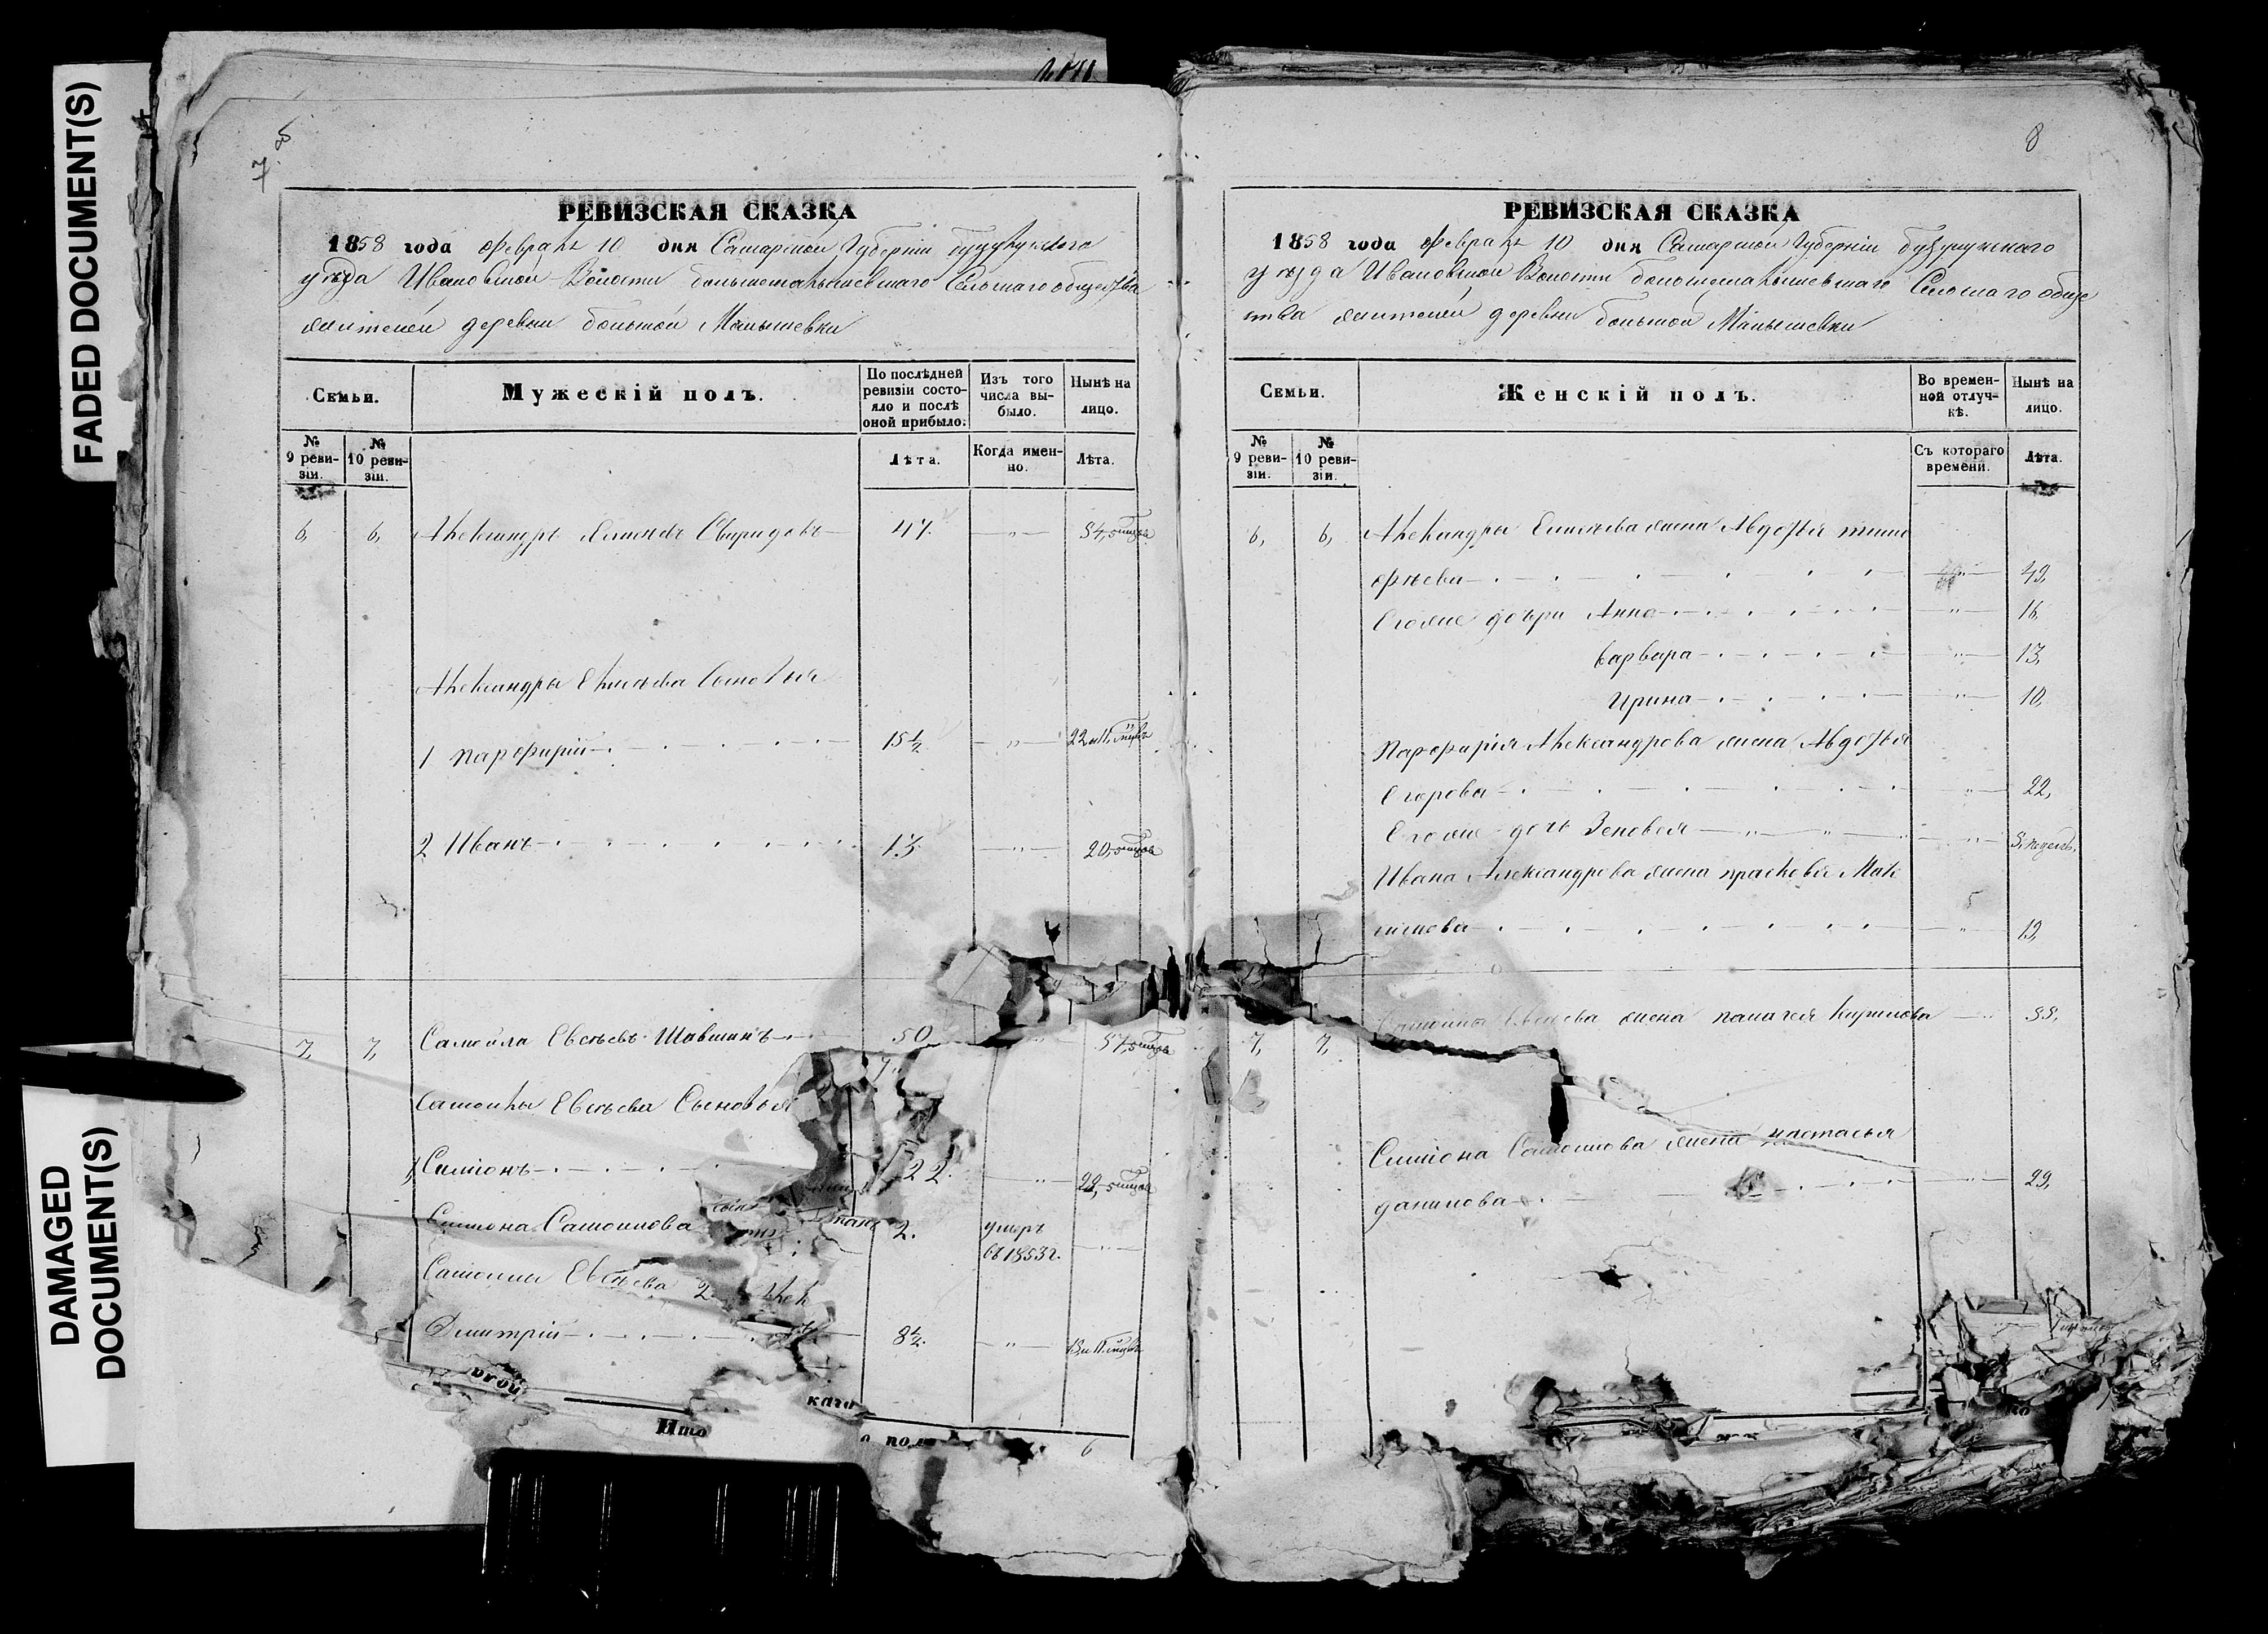 FADED DOCUMENT(S)
DAMAGED
DOCUMENT(S)
7
8
РЕВИЗСКАЯ СКАЗКА
1858 года февраля 10 дня Самарской Губерніи Бузулукского
уѣзда Ивановской Волости большемалышевскаго Сельскаго общества
жителей деревни большой Малышевки
Семьи.
Мужескій полъ.
По послѣдней ревизіи состояло и послѣ оной прибыло.
Изъ того числа выбыло.
Нынѣ на лицо.
№ 9 ревизіи.
№ 10 ревизіи.
Лѣта.
Когда именно.
Лѣта.
6, 6, Александръ Елисѣевъ Свиридовъ 47. " 54,
Александры Елисѣева Сыновья
1 Парфирій 15½ " 22 и 11 мцвъ
2 Иванъ 13 " 20,
7, 7, Самойла Евсѣевъ Шавшинъ 50 " 57,
Самойлы Евсѣева Сыновья
1, Симіонъ 22. " 29,
Симіона Самойлова 2. умеръ въ 1853 г. "
Самойлы Евсѣева 2
Дмитрій 8½. " 
Ито
каго
6
8
РЕВИЗСКАЯ СКАЗКА
1858 года февраля 10 дня Самарской Губерніи бузулукского
уѣзда Ивановской Волости большемалышевскаго Сельскаго обще
ства жителей деревни большой Малышевки
Семьи.
Женскій полъ.
Во временной отлучкѣ.
Нынѣ на лицо.
№ 9 ревизіи.
№ 10 ревизіи.
Съ котораго времени.
Лѣта.
6, 6, Александры Елисѣева жена Авдотья тимо
фѣева 49,
Егоже дочри Анна " 16,
варвара " 13,
Ирина " 10,
Парфирія Александрова жена Авдотья
Егорова " 22,
Егоже дочь Зеновея " 3, недель,
Ивана Александрова жена прасковья Мак
симова " 19,
7, 7, Самойлы Евсѣева жена палагея Кирилова 55,
Симіона Самойлова жена настасья
данилова 29,